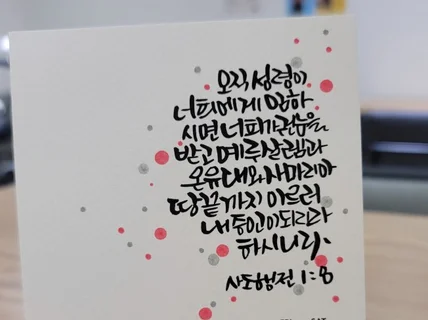 오직 성령이
너희에게 임하
시면 너희가 권능을
받고 예루살렘과
온 유대와 사마리아
땅끝까지 이르러
내 증인이 되리라
하시니라.
사도행전 1:8